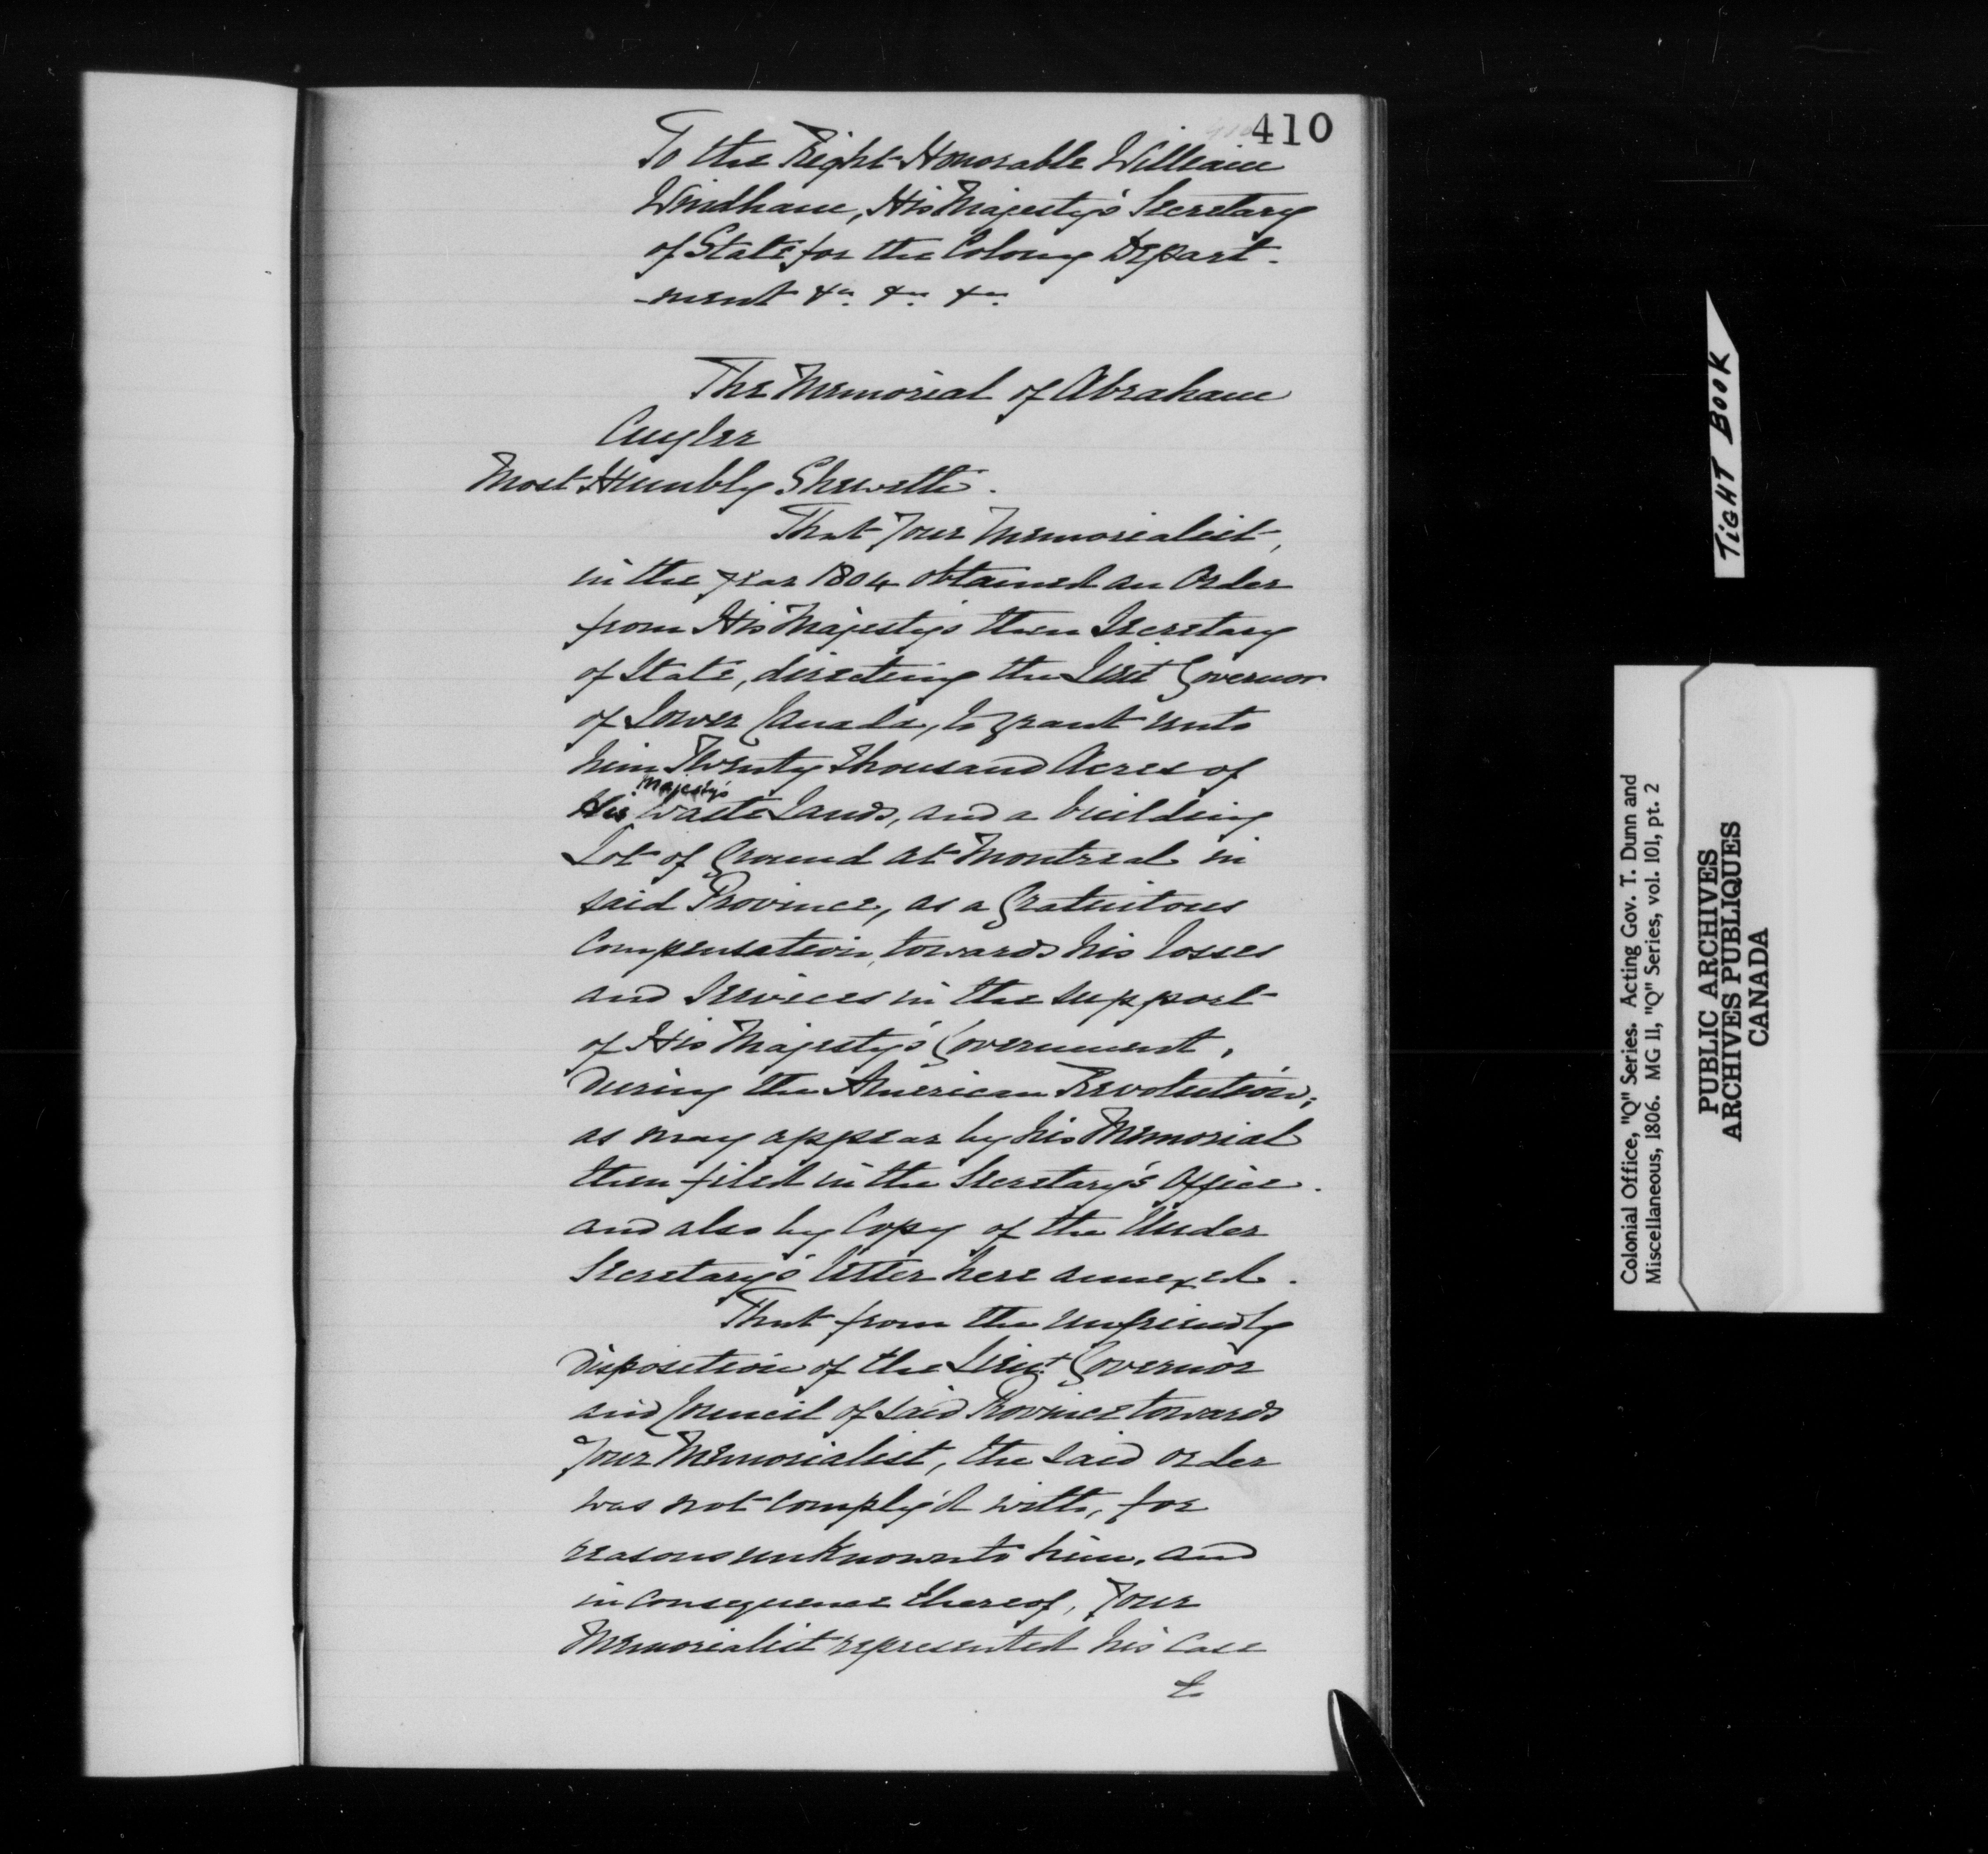 410
To the Right Honorable William
Windham, His Majesty's Secretary
of State for the Colony Depart-
-ment &a. &a. &a.
The Memorial of Abraham
Cuyler
Most Humbly Sheweth.
That Your Memorialist,
in the year 1804 obtained an Order
from His Majesty's then Secretary
of State, directing the Lieut Governor
of Lower Canada, to grant unto
him Twenty Thousand Acres of
His Majesty's Waste Lands, and a building
Lot of Ground at Montreal in
said Province, as a Gratuitous
Compensation, towards his losses
and Services in the support
of His Majesty's Government,
During the American Revolution;
as may appear by his Memorial
then filed in the Secretary's Office.
and also by Copy of the Under
Secretary's letter here annexed.
That from the unfriendly
Disposition of the Lieut Governor
and Council of said Province towards
Your Memorialist, the said order
was not comply'd with, for
reasons unknown to him, and
in consequence thereof, Your
Memorialist represented his Case
to
TIGHT BOOK
Colonial Office, "Q" Series. Acting Gov. T. Dunn and
Miscellaneous, 1806. MG 11, "Q" Series, vol. 101, pt. 2
PUBLIC ARCHIVES
ARCHIVES PUBLIQUES
CANADA